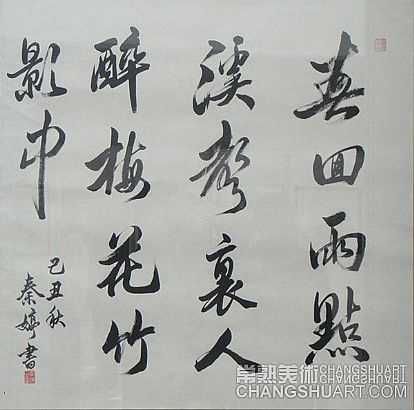 春回雨點
溪聲裏人
醉梅花竹
影中
己丑秋
秦婷書
常熟美術
CHANGSHUART
CHANGSHUART.COM